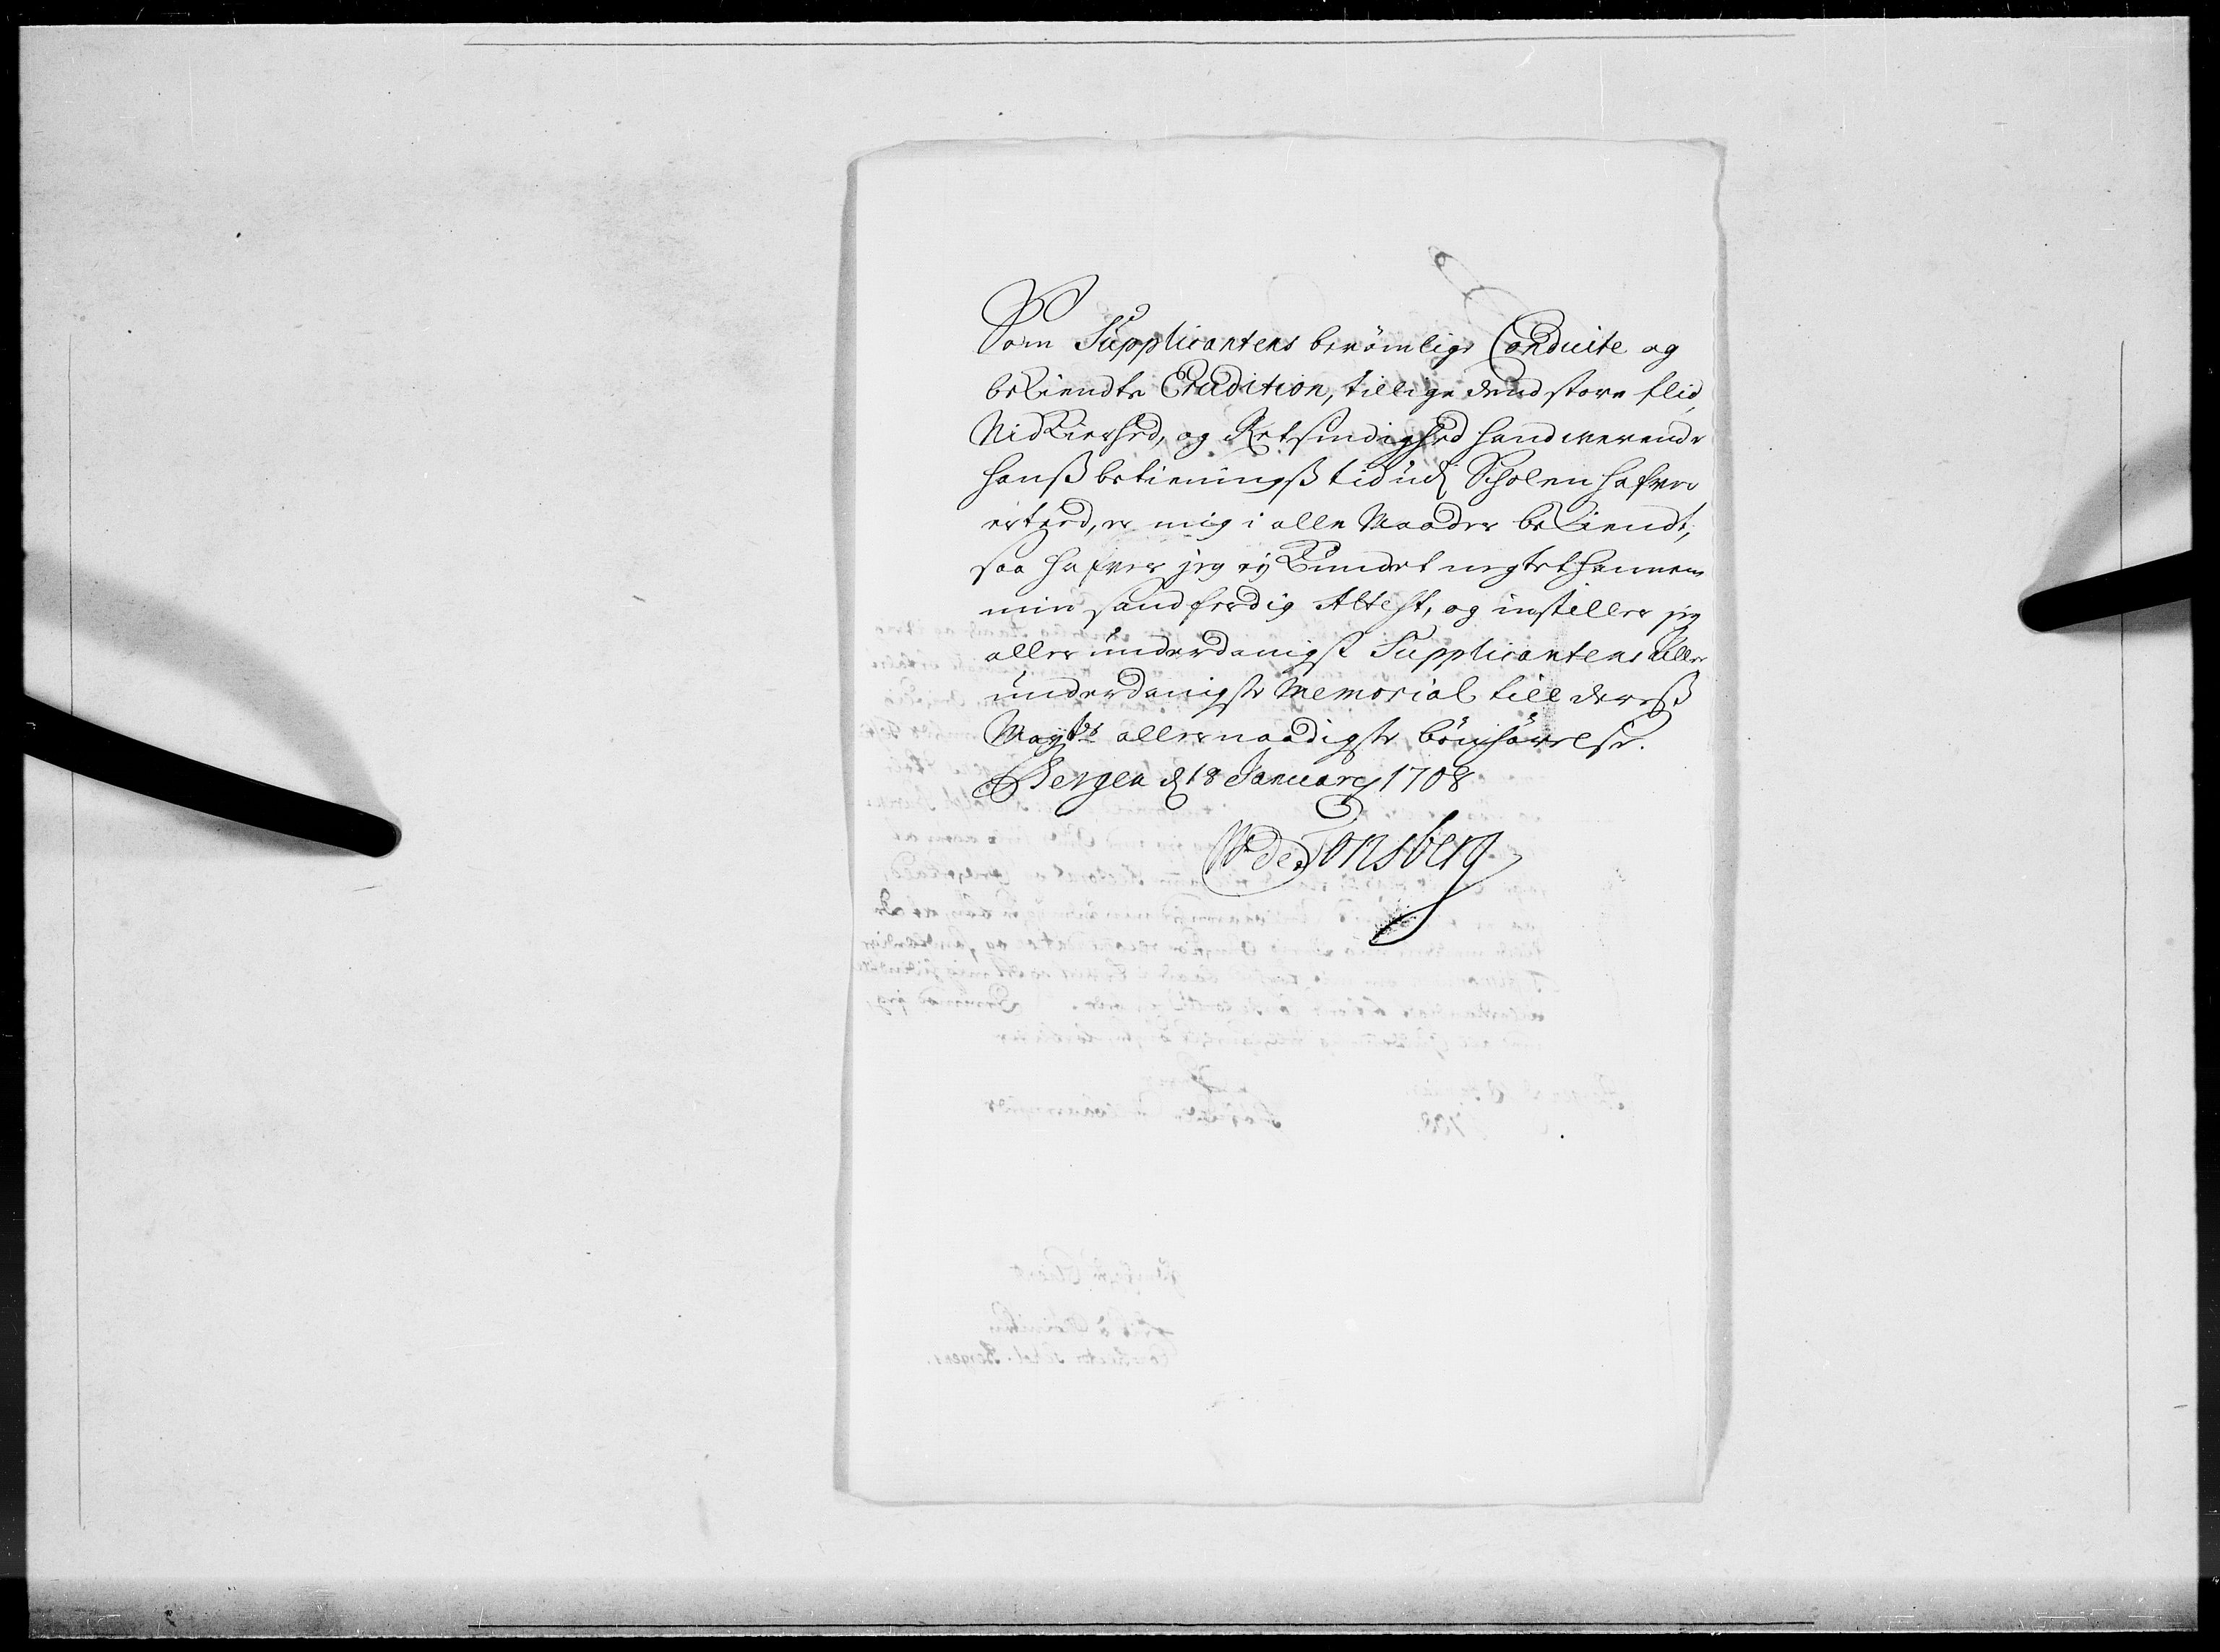 Som Supplicantens berömlige Conduite og
bekiendte Erudition, tillige dend store flid,
Nidkierhed, og Retsindighed hand werende
hanß betieningß tid udj Scholen hafver
erteed, er mig i alle Maader bekiendt,
saa hafver jeg ej kundet negtet hannem
min sandferdig Attest, og instiller jeg
aller underdanigst Supplicantens aller
underdanigste Memorial till dereß
Mayts allernaadigste bönhörelse.
Bergen d 18 January 1708
W de Tonsberg